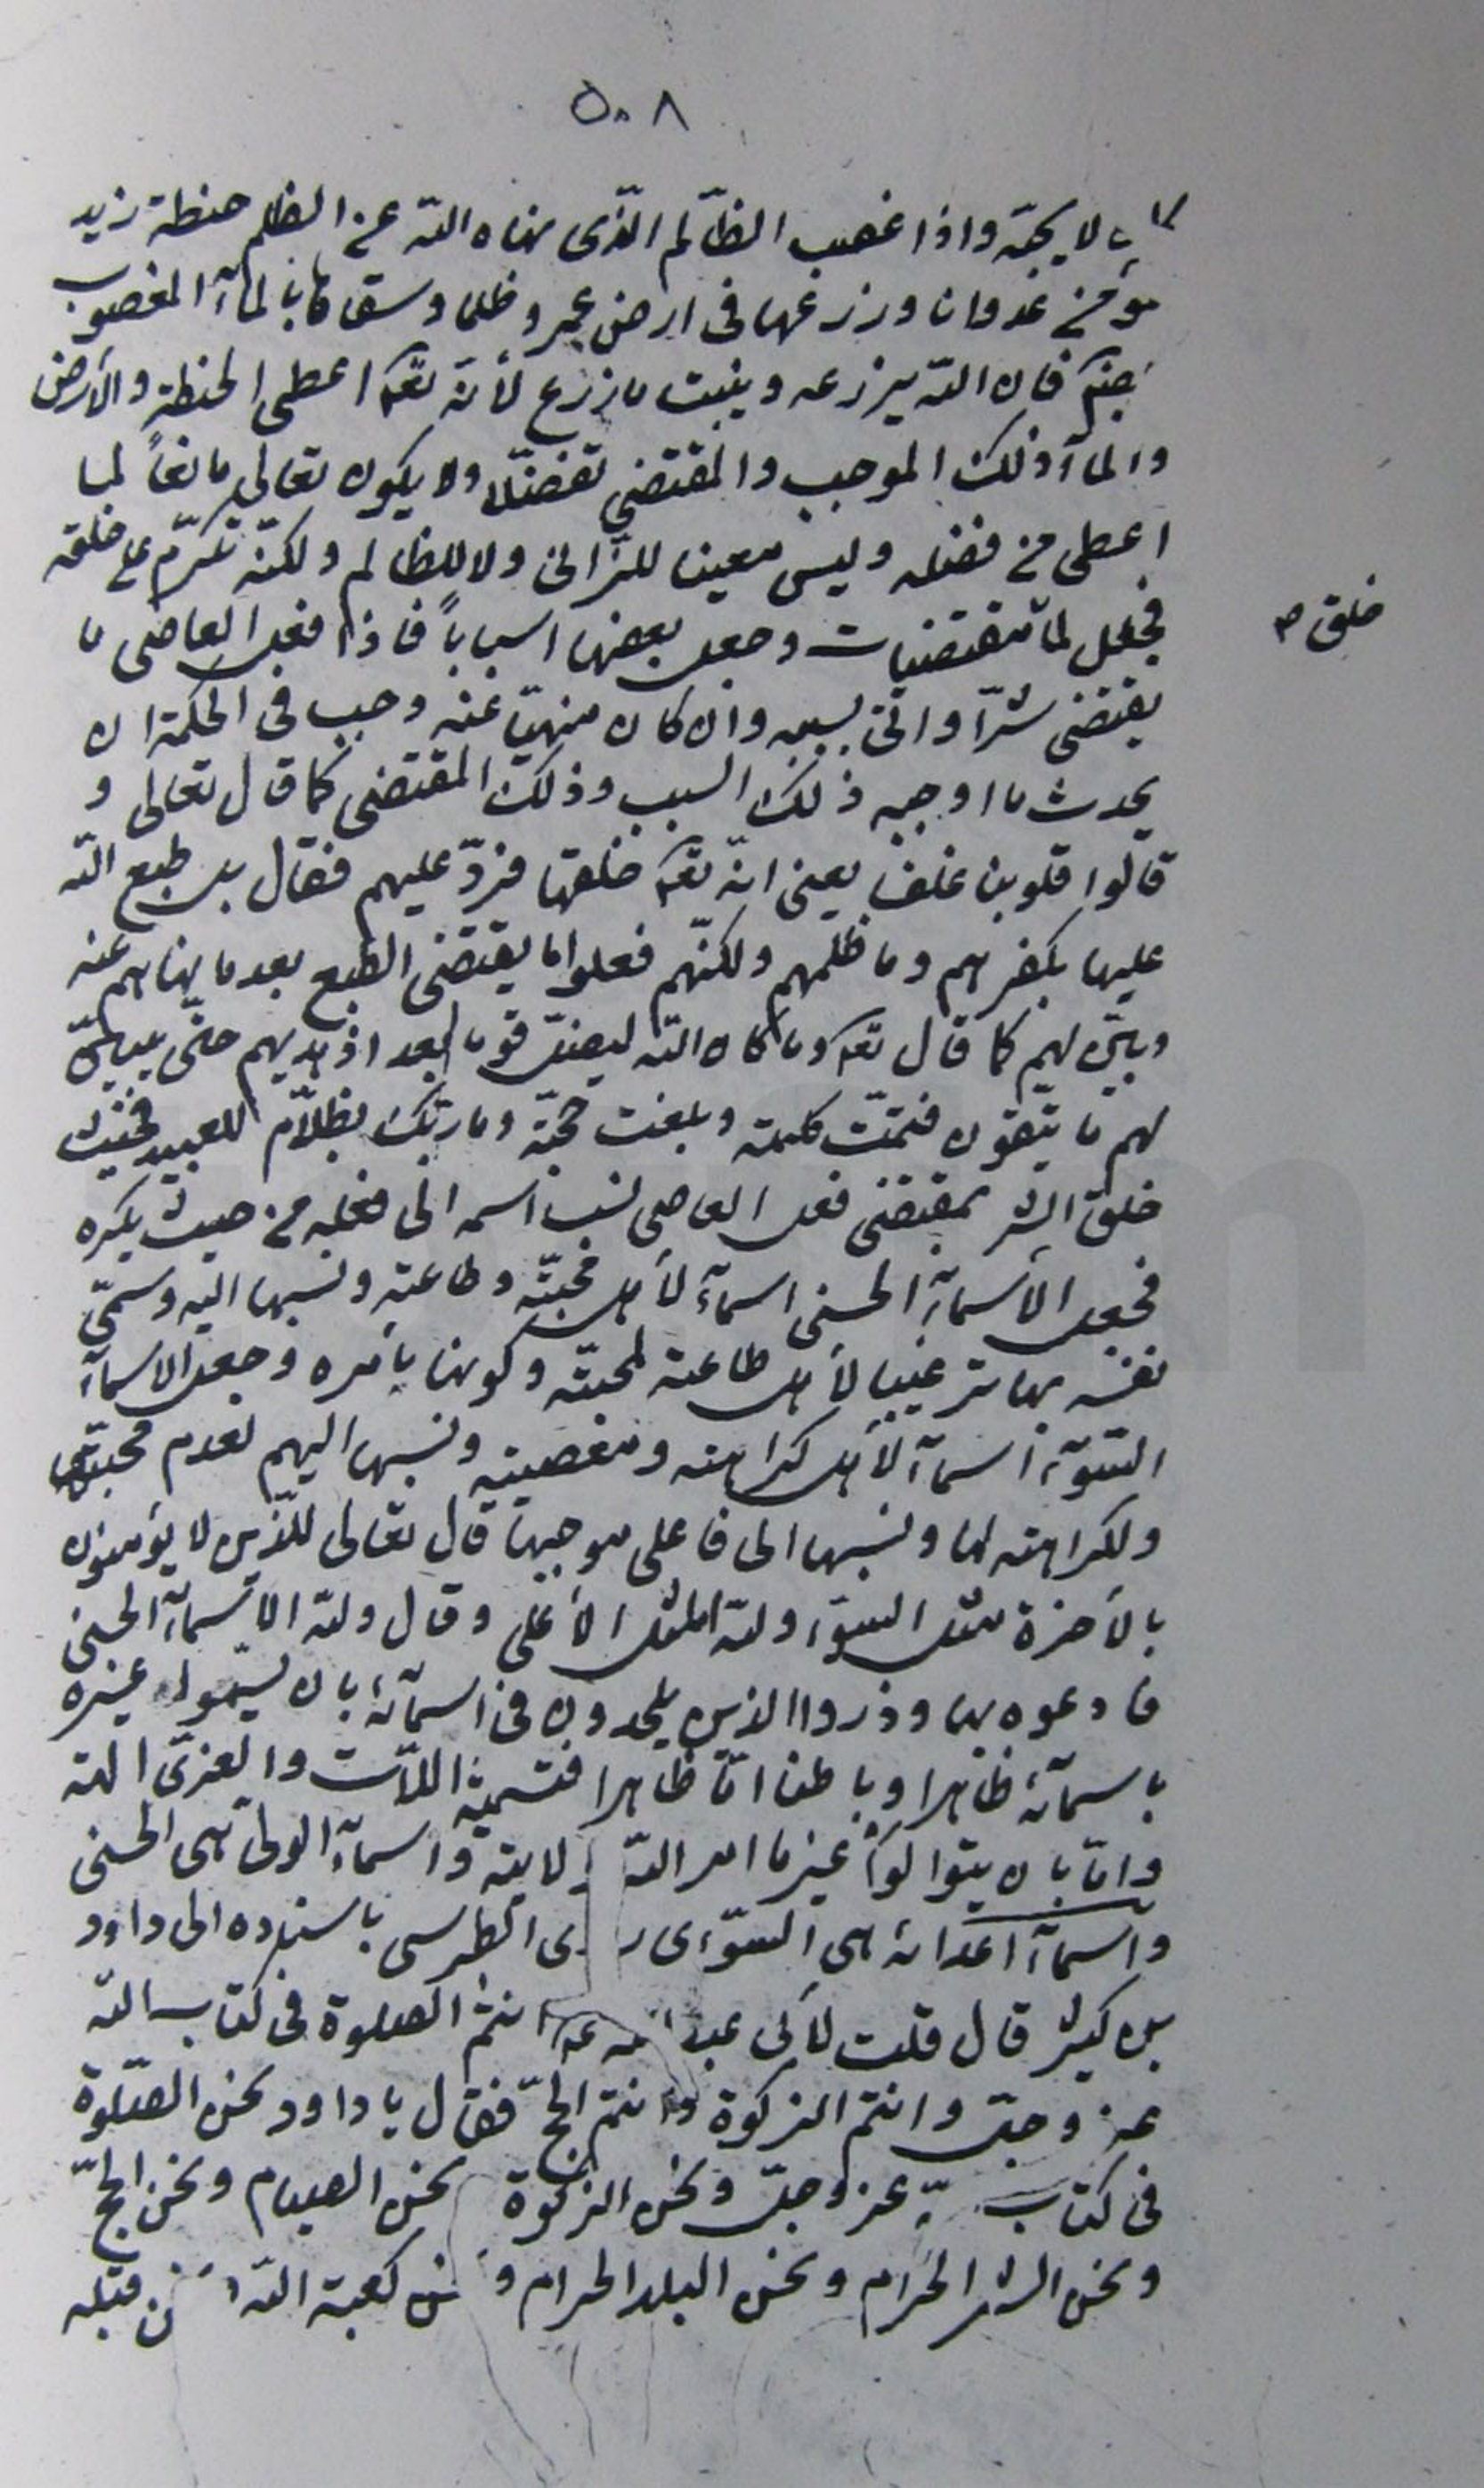 ٥٠٨
لا يحبّه واذا غصب الظّالم الّذى نهاه اللّه عن الظلم حنطة زيد
المؤمن عدوانا وزرعها فى ارض عمرو ظلما وسقاها بالمآء المغصوب
فان اللّه يزرعه وينبت ما زرع لأنّه تعٰ اعطى الحنطة والأرض
والمآء ذلك الموجب والمقتضى تفضّلا ولا يكون تعالى مانعاً لما
اعطى من فضله وليس معينا للزّانى ولا للظالم ولكنّه تكرّم على خلقه
فجعل لما خلق مقتضيات وجعل بعضها اسباباً فاذا فعل العاصى ما
يقتضى شرّا واتى بسببه وان كان منهيّا عنه وجب فى الحكمة ان
يحدث ما اوجبه ذلك السبب وذلك المقتضى كما قال تعالى و
قالوا قلوبنا غلف يعنى انّه تعٰ خلقها فردّ عليهم فقال بل طبع اللّه
عليها بكفرهم وما ظلمهم ولكنّهم فعلوا ما يقتضى الطبع بعد ما نهاهم عنه
وبيّن لهم كما قال تعٰ وما كان اللّه ليضلّ قوما بعد اذ هديهم حتّى يبيّن
لهم ما يتّقون فتمّت كلمته وبلغت حجّته وما ربّك بظلاّم للعبيد فحيث
خلق الشر بمقتضى فعل العاصى نسب اسمه الى فعله من حيث يكره
فجعل الأسمآء الحسنى اسمآء لأهل محبّته وطاعته ونسبها اليه وسمّى
نفسه بها ترغيبا لأهل طاعته لمحبّته وكونها بأمره وجعل الاسمآء
السّوآء اسمآء لأهل كراهته ومعصيته ونسبها اليهم لعدم محبّته
ولكراهته لها ونسبها الى فاعلى موجبها قال تعالى للّذين لا يؤمنون
بالأخرة مثل السوء وللّه المثل الأعلى وقال وللّه الأسمآء الحسنى
فادعوه بها وذروا الذين يلحدون فى اسمآئه بان يسمّوا غيره
باسمآئه ظاهرا وباطنا امّا ظاهرا فتسمية اللاّت والعزّى الهة
وامّا بان يتوالوا غير ما امر اللّه بولايته واسمآء الولى هى الحسنى
واسمآء اعدائه هى السّوءى روى الطبرسى باسناده الى داود
بن كثير قال قلت لأبى عبد اللّه عٰ انتم الصلوة فى كتاب اللّه
عز وجلّ وانتم الزكوة وانتم الحجّ فقال يا داود نحن الصّلوة
فى كتاب اللّه عز وجلّ ونحن الزكوة ونحن الصيام ونحن الحجّ
ونحن الشهر الحرام ونحن البلد الحرام ونحن كعبة اللّه ونحن قبلة
خلق ص